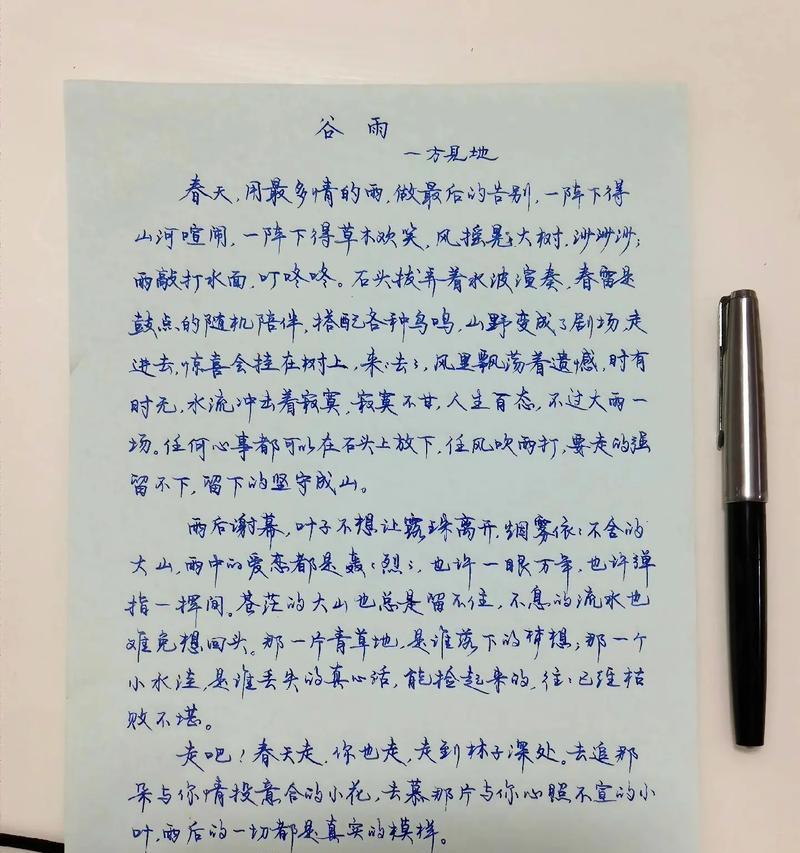 谷雨
一方见地
春天,用最多情的雨,做最后的告别,一阵下得
山河喧闹,一阵下得草木欢笑,风摇晃着大树,沙沙沙;
雨敲打水面,叮咚咚。石头拨弄着水波演奏,春雷是
鼓点的随机陪伴,搭配各种鸟鸣,山野变成了剧场,走
进去,惊喜会挂在树上,来:去:,风里飘荡着遗憾,时有
时无,水流冲击着寂寞,寂寞不甘,人生百态,不过大雨一
场。任何心事都可以在石头上放下,任风吹雨打,要走的强
留不下,留下的坚守成山。
雨后谢幕,叶子不想让露珠离开,烟雾依:不舍的
大山,雨中的爱恋都是轰:烈:,也许一眼万年,也许弹
指一挥间。苍茫的大山也总是留不住,不息的流水也
难免想回头。那一片青草地,是谁落下的梦想;那一个
小水洼,是谁丢失的真心话,能捡起来的,往:已经枯
败不堪。
走吧!春天走,你也走,走到林子深处。去追那
朵与你情投意合的小花,去慕那片与你心照不宣的小
叶,雨后的一切都是真实的模样。